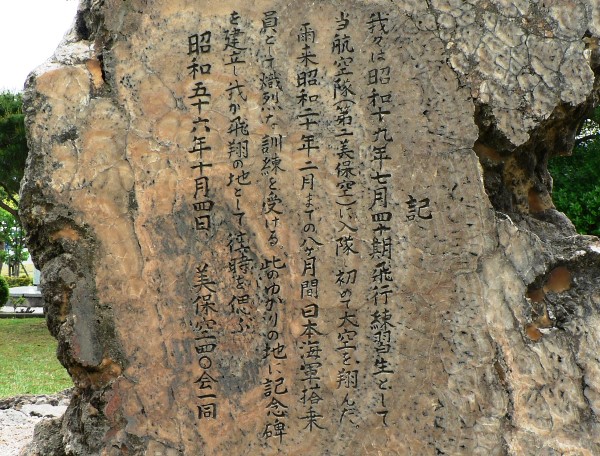 記
我々は昭和十九年七月四十期飛行練習生として
当航空隊(第二美保空)に入隊 初めて大空を翔んだ
爾来昭和二十年二月までの八ヶ月間日本海軍搭乗
員として熾烈な訓練を受ける。此のゆかりの地に記念碑
を建立し我が飛翔の地として往時を偲ぶ
昭和五十六年十月四日 美保空四〇会一同